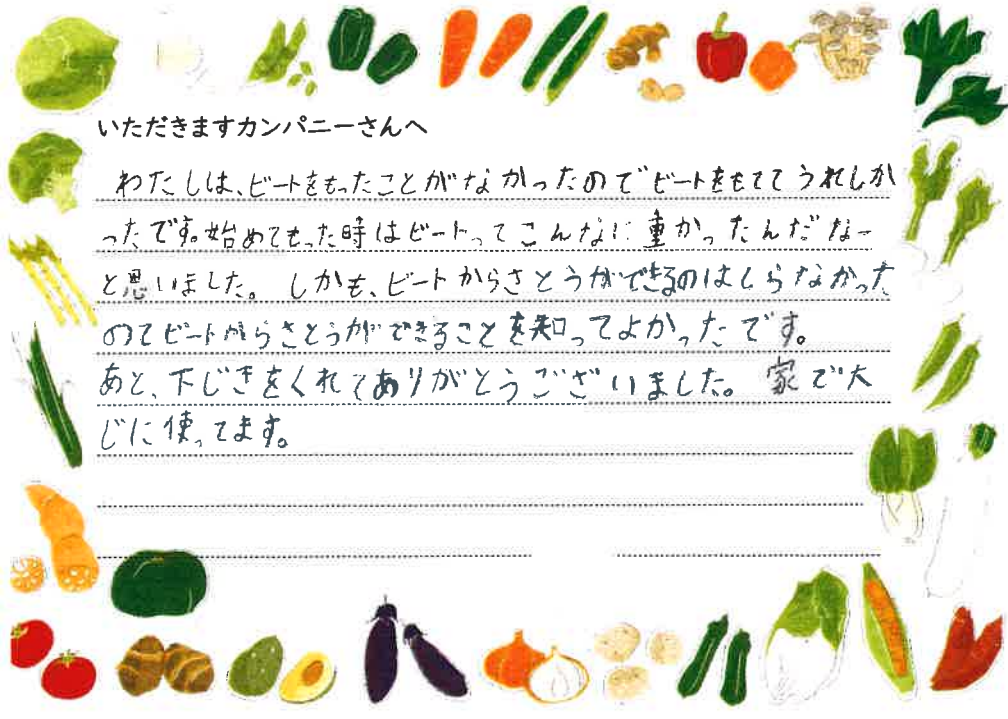 いただきますカンパニーさんへ
わたしは、ビートをもったことがなかったのでビートをもててうれしか
ったです。始めてもった時はビートってこんなに重かったんだなー
と思いました。しかも、ビートからさとうができるのはしらなかった
のでビートからさとうができることを知ってよかったです。
あと、下じきをくれてありがとうございました。家で大
じに使ってます。